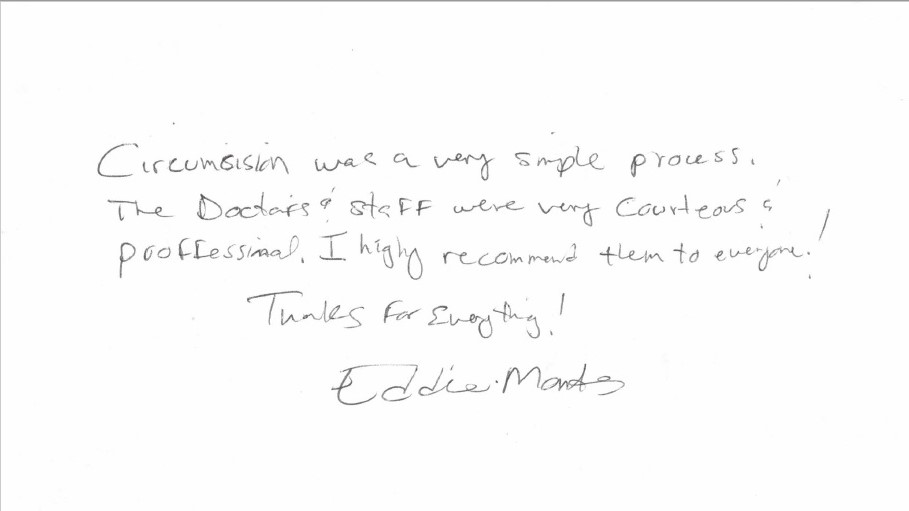 Circumsision was a very simple process.
The Doctors & staFF were very Courteous &
proffessional. I highly recommend them to everyone!
Thanks For Everything!
Eddie